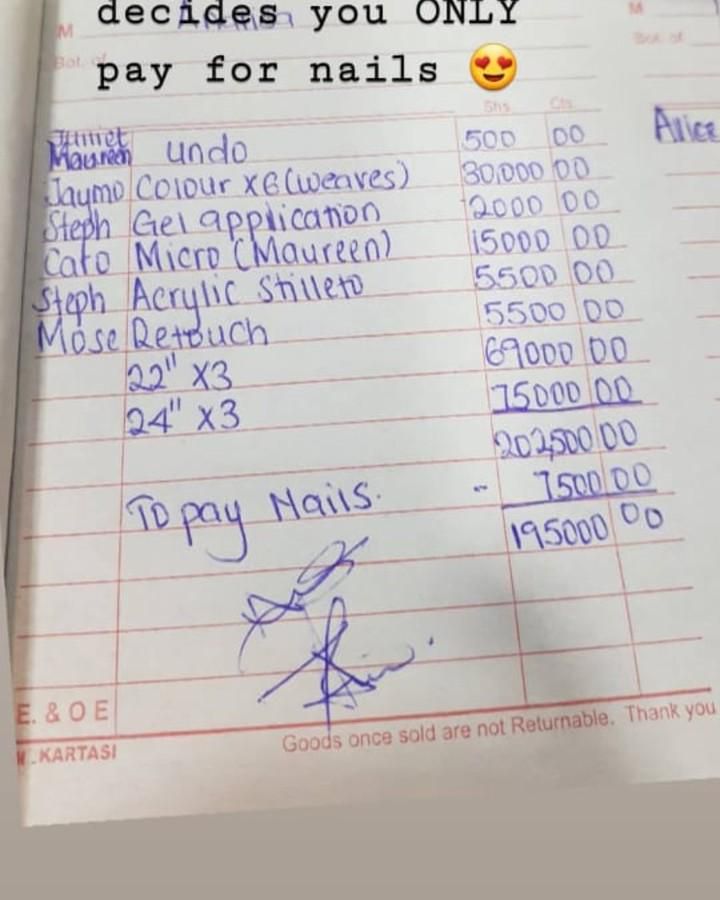 decides you ONLY
pay for nails 😍
M
M
Bot. of
Bot. of
Shs. Cts.
Juliet
Maureen undo 500 00
Alice
Jaymo Colour x6 (weaves) 30,000 00
Steph Gel application 2000 00
Cato Micro (Maureen) 15000 00
Steph Acrylic Stilleto 5500 00
Mose Retouch 5500 00
22" X3 69000 00
24" X3 75000 00
202,500 00
To pay Nails. - 7500 00
195000 00
E. & O E
KARTASI
Goods once sold are not Returnable. Thank you